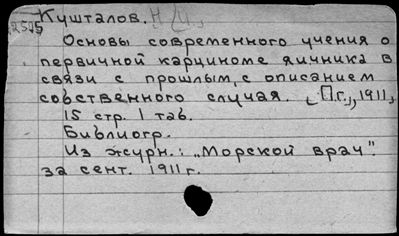 Кушталов. Н. И.,
Основы современного учения о
первичной карциноме яичника в
связи с прошлым, с описанием
собственного случая. [П.г., 1911,
15 стр. 1 таб.
Библиогр.
Из журн.: „Морской врач".
за сент. 1911 г.